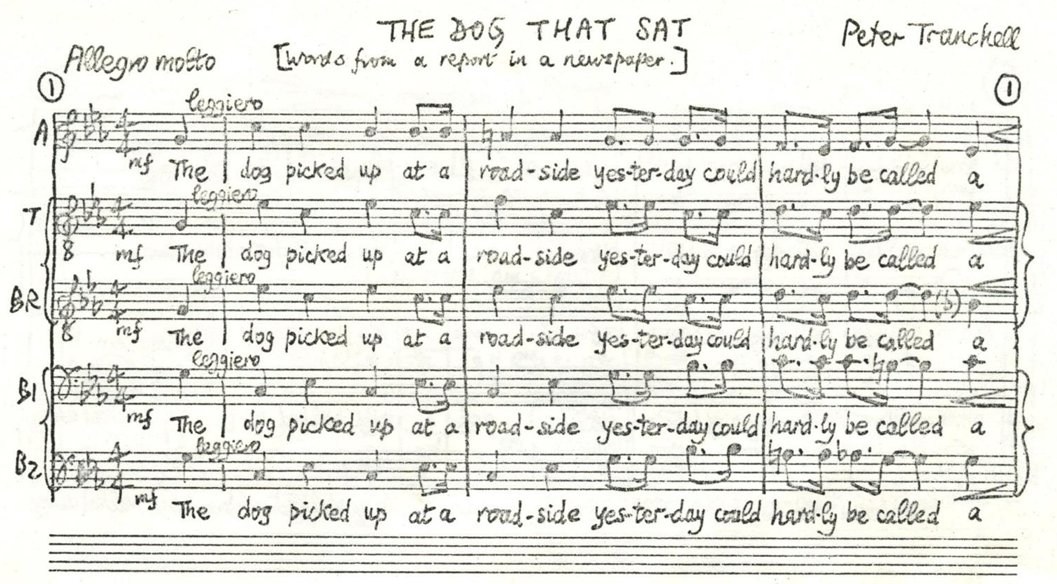 THE DOG THAT SAT
Peter Tranchell
Allegro molto
[Words from a report in a newspaper.]
1
1
leggiero
A
mf The dog picked up at a road-side yes-ter-day could hard-ly be called a
leggiero
T
8
mf The dog picked up at a road-side yes-ter-day could hard-ly be called a
leggiero
BR
8
mf The dog picked up at a road-side yes-ter-day could hard-ly be called a
leggiero
B1
mf The dog picked up at a road-side yes-ter-day could hard-ly be called a
leggiero
B2
mf The dog picked up at a road-side yes-ter-day could hard-ly be called a